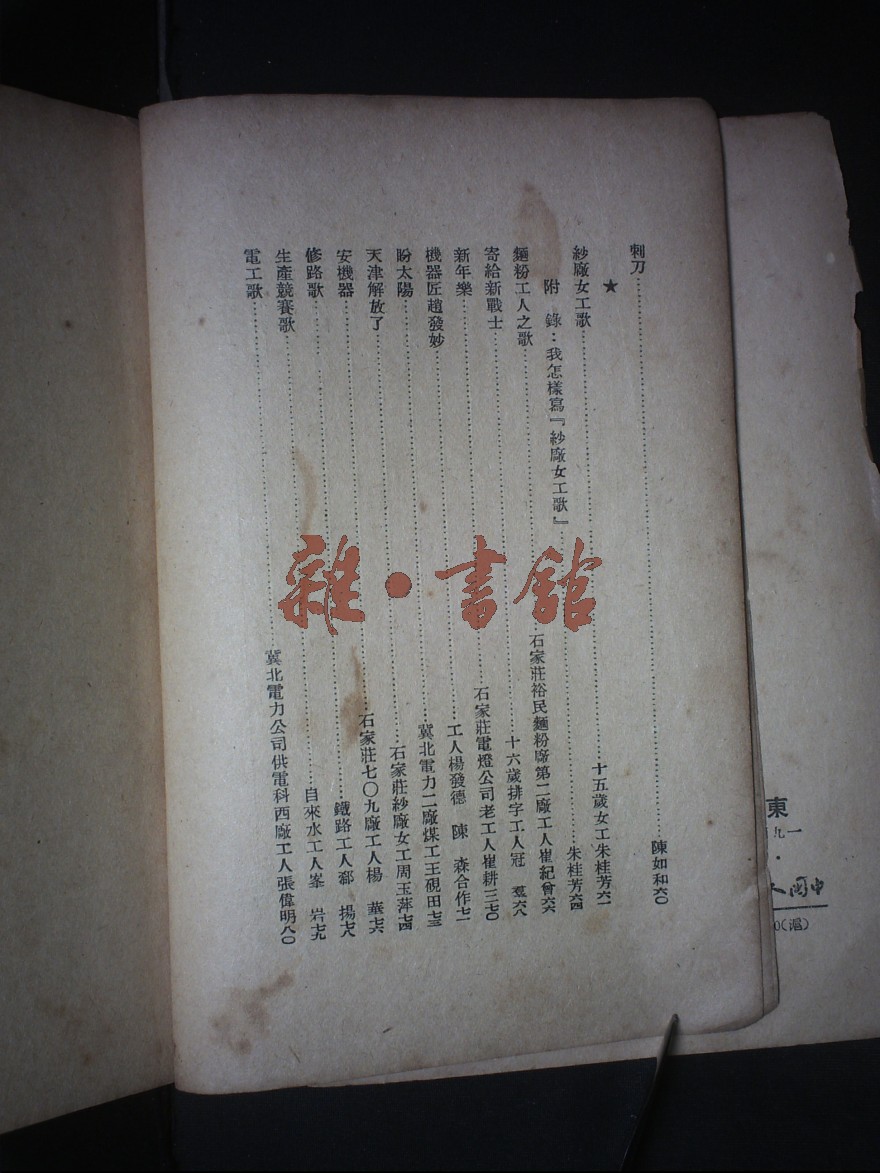 刺刀……陳如和六〇
★
紗廠女工歌……十五歲女工朱桂芳六一
附 錄：我怎樣寫『紗廠女工歌』……朱桂芳六四
麵粉工人之歌……石家莊裕民麵粉廠第二廠工人崔紀曾六六
寄給新戰士……十六歲排字工人冠 羣六八
新年樂……石家莊電燈公司老工人崔耕三七〇
機器匠趙發妙……工人楊發德 陳 森合作七二
盼太陽……冀北電力二廠煤工王硯田七三
天津解放了……石家莊紗廠女工周玉萍七四
安機器……石家莊七〇九廠工人楊 華七六
修路歌……鐵路工人郗 揚七八
生產競賽歌……自來水工人峯 岩七九
電工歌……冀北電力公司供電科西廠工人張偉明八〇
雜·書館
東
一九
中國人
0(滬)